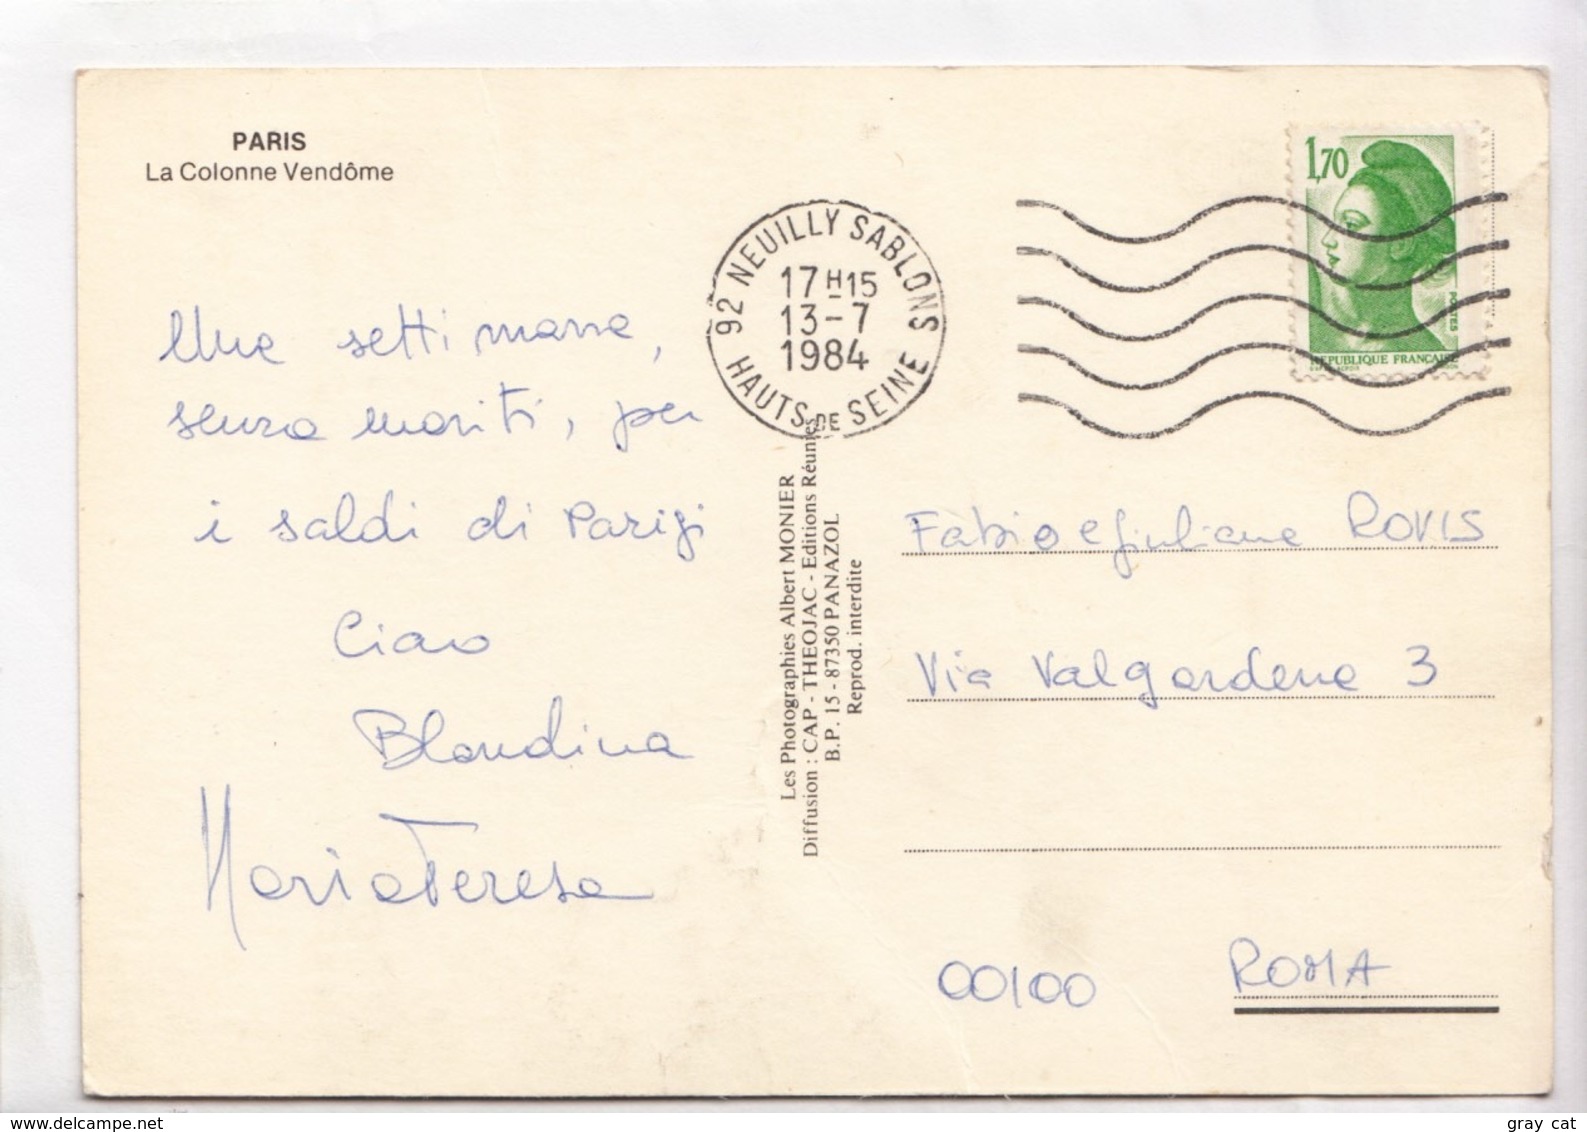 PARIS
La Colonne Vendôme
Una settimana,
senza mariti, per
i saldi di Parigi
Ciao
Blandina
Maria Teresa
92 NEUILLY SABLONS
17H15
13-7
1984
HAUTS DE SEINE
1,70
POSTES
REPUBLIQUE FRANCAISE
Les Photographies Albert MONIER
Diffusion : CAP - THEOJAC - Editions Réunies
B.P. 15 - 87350 PANAZOL
Reprod. interdite
Fabio e Giuliana ROVIS
Via Valgardena 3
00100 ROMA
www.delcampe.net
gray cat